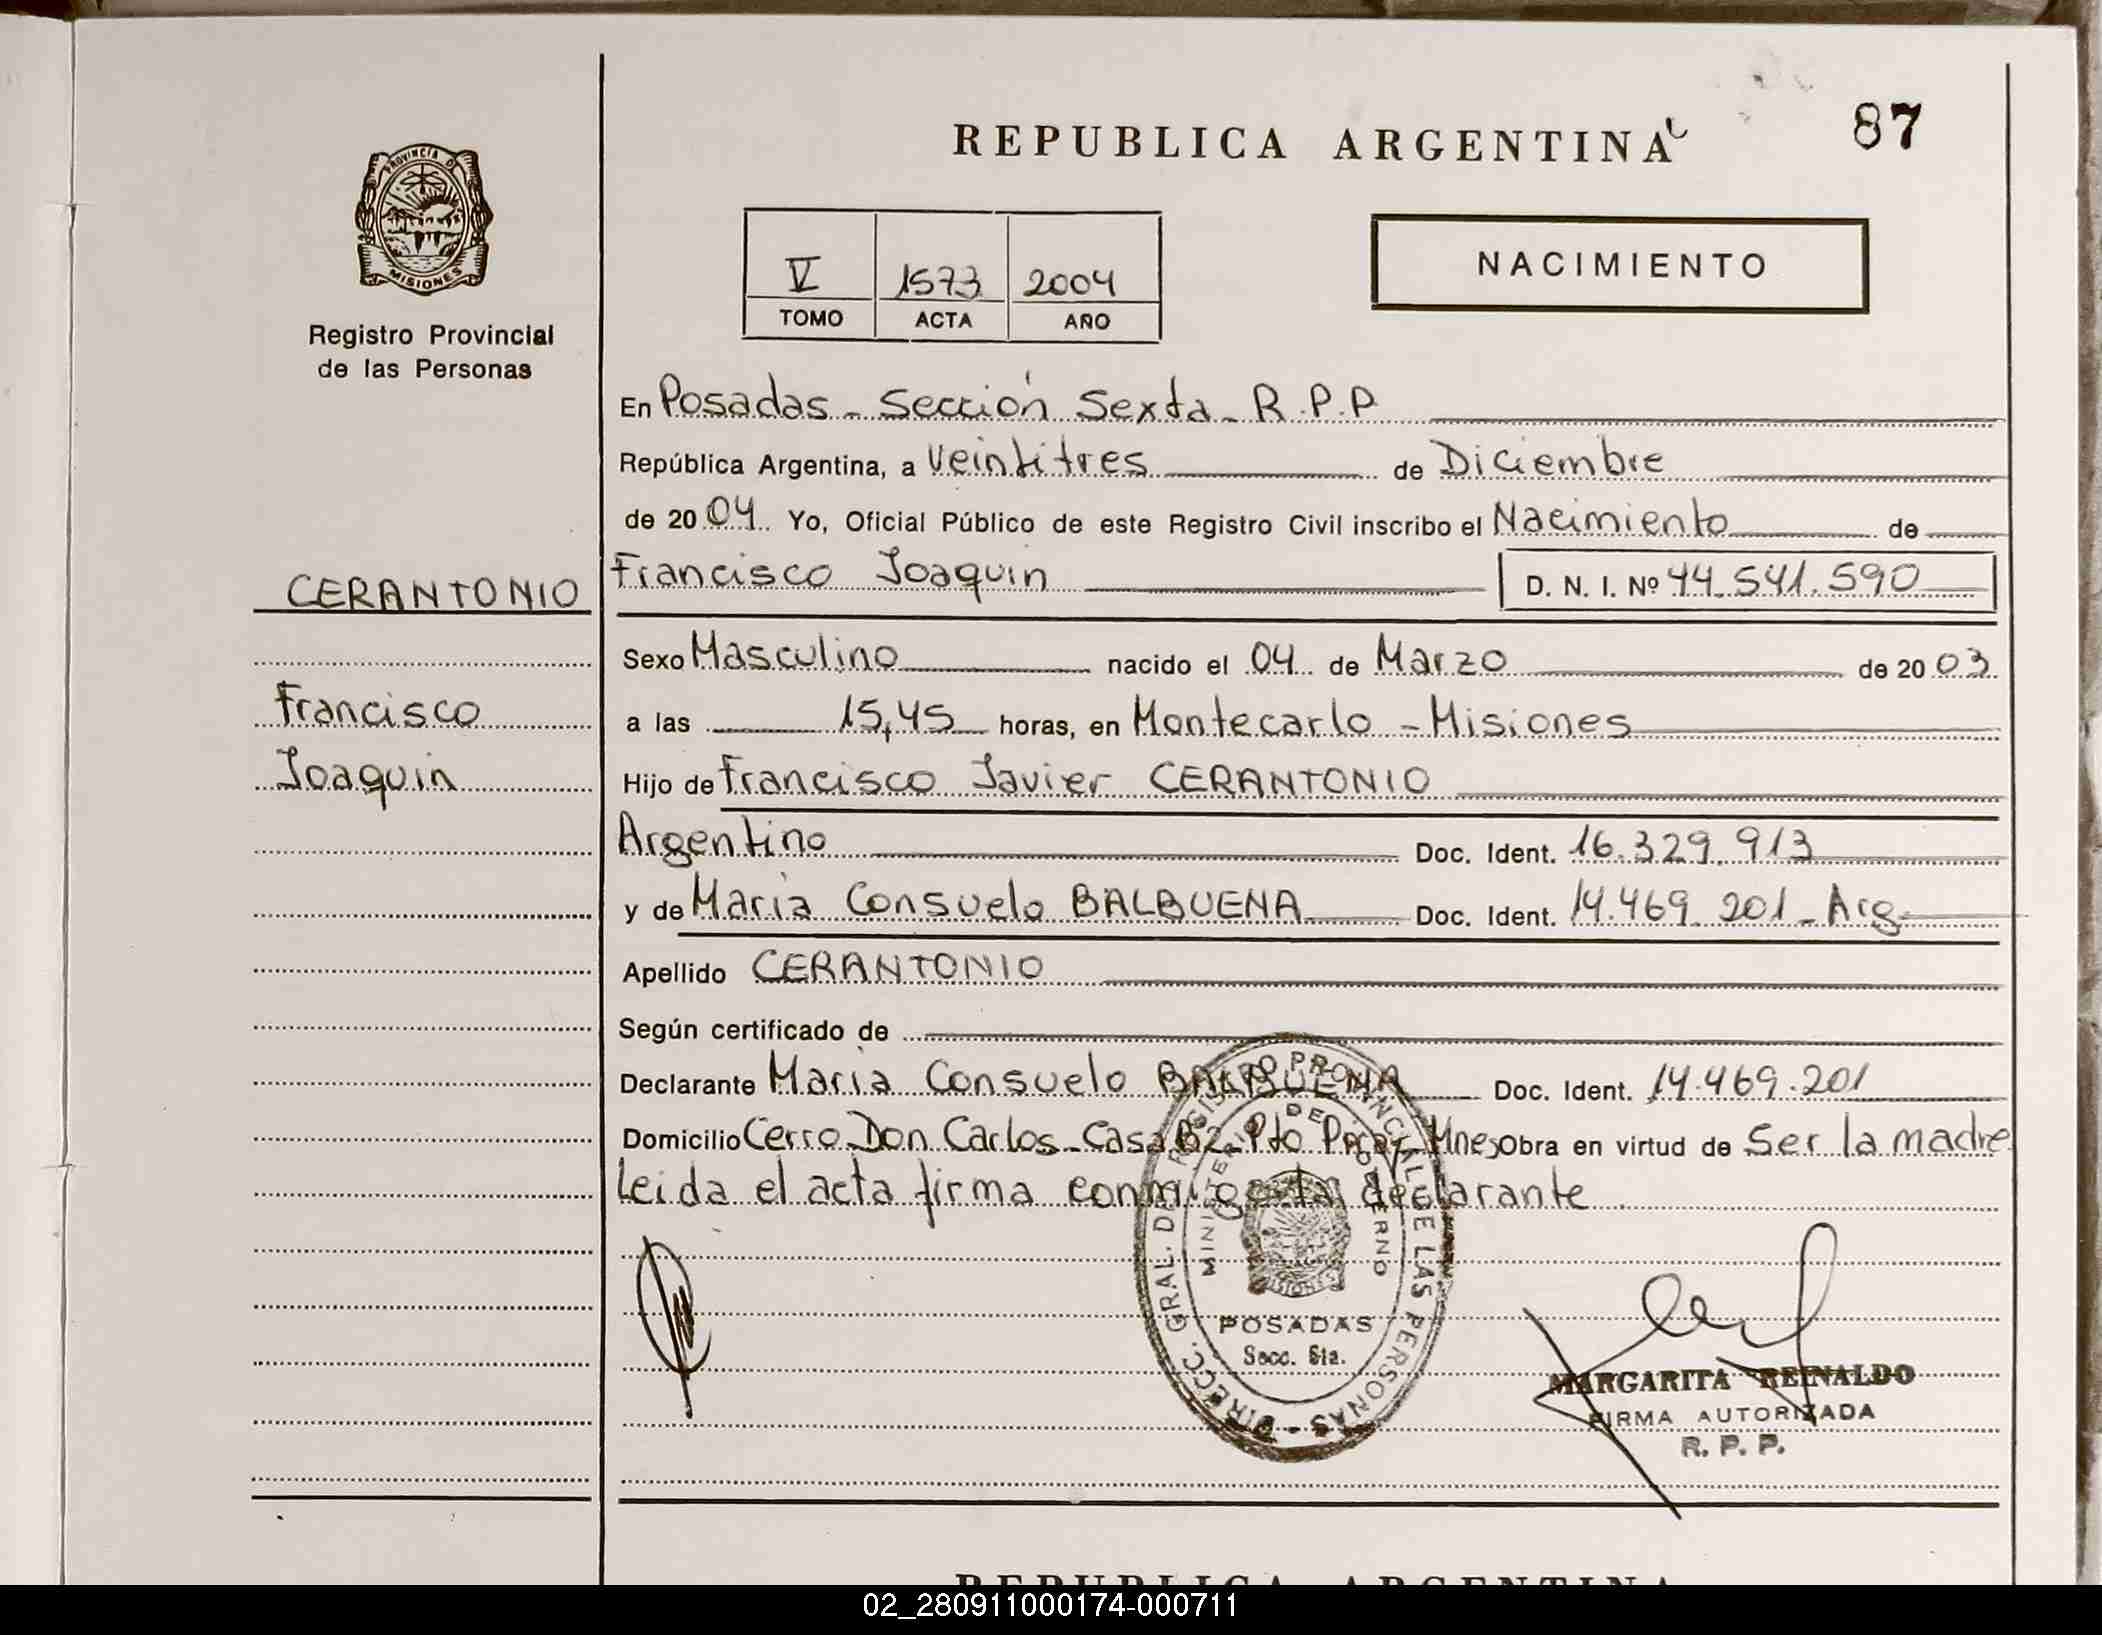 REPUBLICA ARGENTINA
87
PROVINCIA DE
MISIONES
Registro Provincial
de las Personas
V 1573 2004
TOMO ACTA AÑO
NACIMIENTO
En Posadas - Sección Sexta - R.P.P
República Argentina, a veintitres de Diciembre
de 2004 Yo, Oficial Público de este Registro Civil inscribo el Nacimiento de
CERANTONIO
Francisco Joaquin D. N. I. Nº 44.541.590
Sexo Masculino nacido el 04 de Marzo de 2003
Francisco
a las 15,45 horas, en Montecarlo - Misiones
Joaquin
Hijo de Francisco Javier CERANTONIO
Argentino Doc. Ident. 16.329.913
y de Maria Consuelo BALBUENA Doc. Ident. 14.469.201 - Arg.
Apellido CERANTONIO
Según certificado de
Declarante Maria Consuelo BALBUENA Doc. Ident. 14.469.201
Domicilio Cerro Don Carlos - Casa 82 - Pto Piray Mnes Obra en virtud de Ser la madre
Leida el acta firma conmigo la declarante
DIRECC. GRAL. DE REGISTRO PROVINCIAL DE LAS PERSONAS
MINISTERIO DE GOBIERNO
MISIONES
POSADAS
Secc. 6ta.
MARGARITA REINALDO
FIRMA AUTORIZADA
R. P. P.
REPUBLICA ARGENTINA
02_280911000174-000711